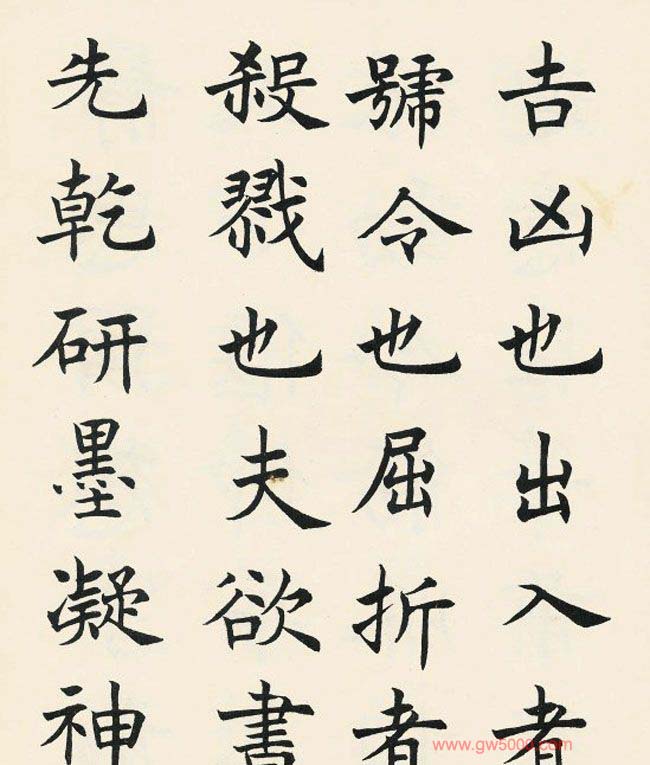 吉凶也出入者
號令也屈折者
殺戮也夫欲書
先乾研墨凝神
www.gw5000.com